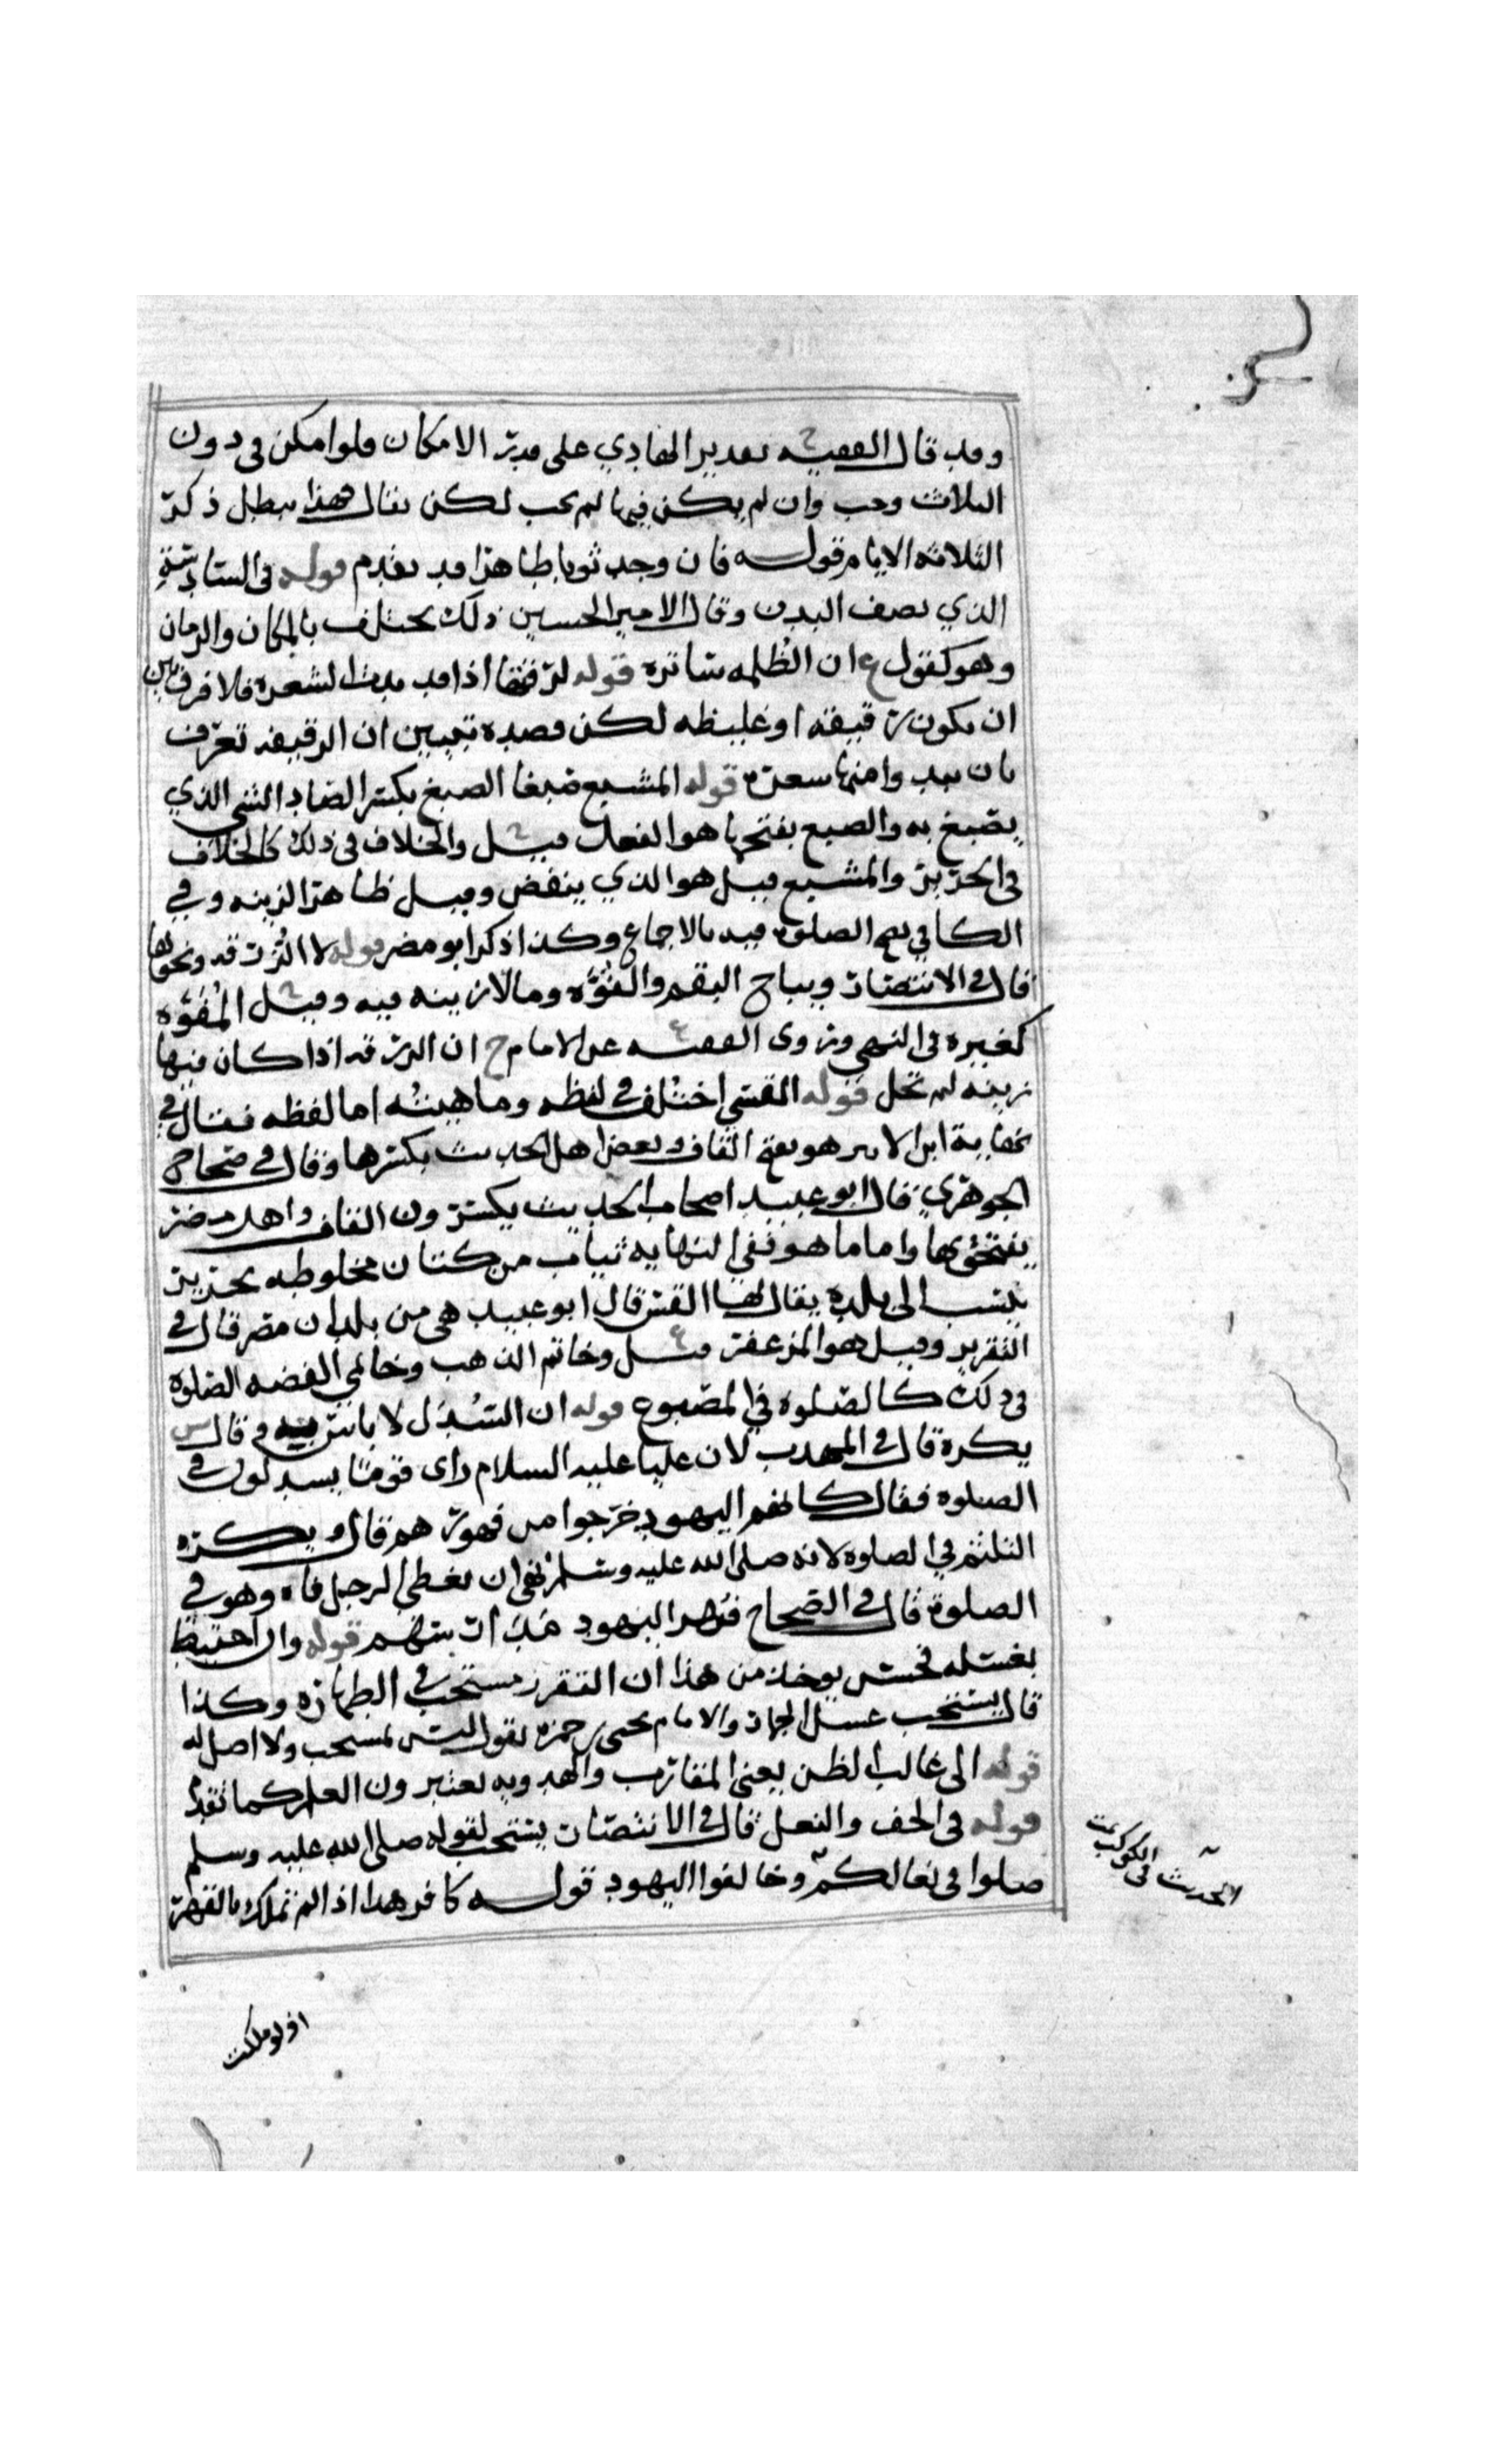 وقد قال الفقيه ح تقدير الهادي على قدر الامكان فلو امكن في دون
الثلاث وجب وان لم يمكن فيها لم يجب لكن يقال هذا يبطل ذكر
الثلاثه الايام قوله فان وجد ثوبا طاهرا قد تقدم قوله في الساترة
الذي نصف البدن وقال الامير الحسين ذلك يختلف بالمكان والزمان
وهو كقول ع ان الظلمه ساتره قوله لرقتها اذا قد بدت الشعره فلا فرق بين
ان يكون رقيقه او غليظه لكن قصده تبيين ان الرقيقه تعرف
بان يبدوا منها شعره قوله المشبع صبغا الصبغ بكسر الصاد الشي الذي
يصبغ به والصبغ بفتحها هو الفعل قيل ح والخلاف في ذلك كالخلاف
في الحرير والمشبع قيل هو الذي ينفض وقيل ظاهر الزينه وفي
الكافي يصح الصلوه فيه بالاجماع وكذا ذكر ابو مضر قوله لا الزرقه ونحوها
قال في الانتصار ويباح البقم والفوّه وما لا زينه فيه وقيل ح المفوّه
كغيره في النهي وروى الفقيه ع عن الامام ح ان الزرقه اذا كان فيها
زينه لم تحل قوله القسي اختلف في لفظه وماهيته اما لفظه فقال في
نهاية ابن الاثير هو بفتح القاف وبعض اهل الحديث بكسرها وقال في صحاح
الجوهري قال ابو عبيد اصحاب الحديث يكسرون القاف واهل مصر
يفتحونها واما ما هو ففي النهايه ثياب من كتان مخلوطه بحرير
ينسب الى بلده يقال لها القس قال ابو عبيد هي من بلدان مصر قال في
التقرير وقيل هو المزعفر قيل ع وخاتم الذهب وخاتمي الفضه الصلوه
في ذلك كالصلوه في المصبوغ قوله ان السدل لا باس فيه وقال س
يكره قال في المهذب لان عليا عليه السلام راى قوما يسدلون في
الصلوه فقال كانهم اليهود خرجوا من فهورهم قال ويكره
التلثم في الصلوه لانه صلى الله عليه وسلم نهى ان يغطي الرجل فاه وهو في
الصلوة قال في الصحاح فهر اليهود مدراسهم قوله وان احتيط
بغسله فحسن يوخذ من هذا ان التقرز مستحب في الطهاره وكذا
قال يستحب غسل الجهاز والامام يحيى حمزه يقول ليس بمستحب ولا اصل له
قوله الى غالب الظن يعني المقارب والهدويه يعتبرون العلم كما تقدم
قوله في الخف والنعل قال في الانتصار يستحب لقوله صلى الله عليه وسلم
صلوا في نعالكم وخالفوا اليهود قوله كافر هذا اذا لم تملك بالقهر
الحديث في الكوكب
او لو ملكت